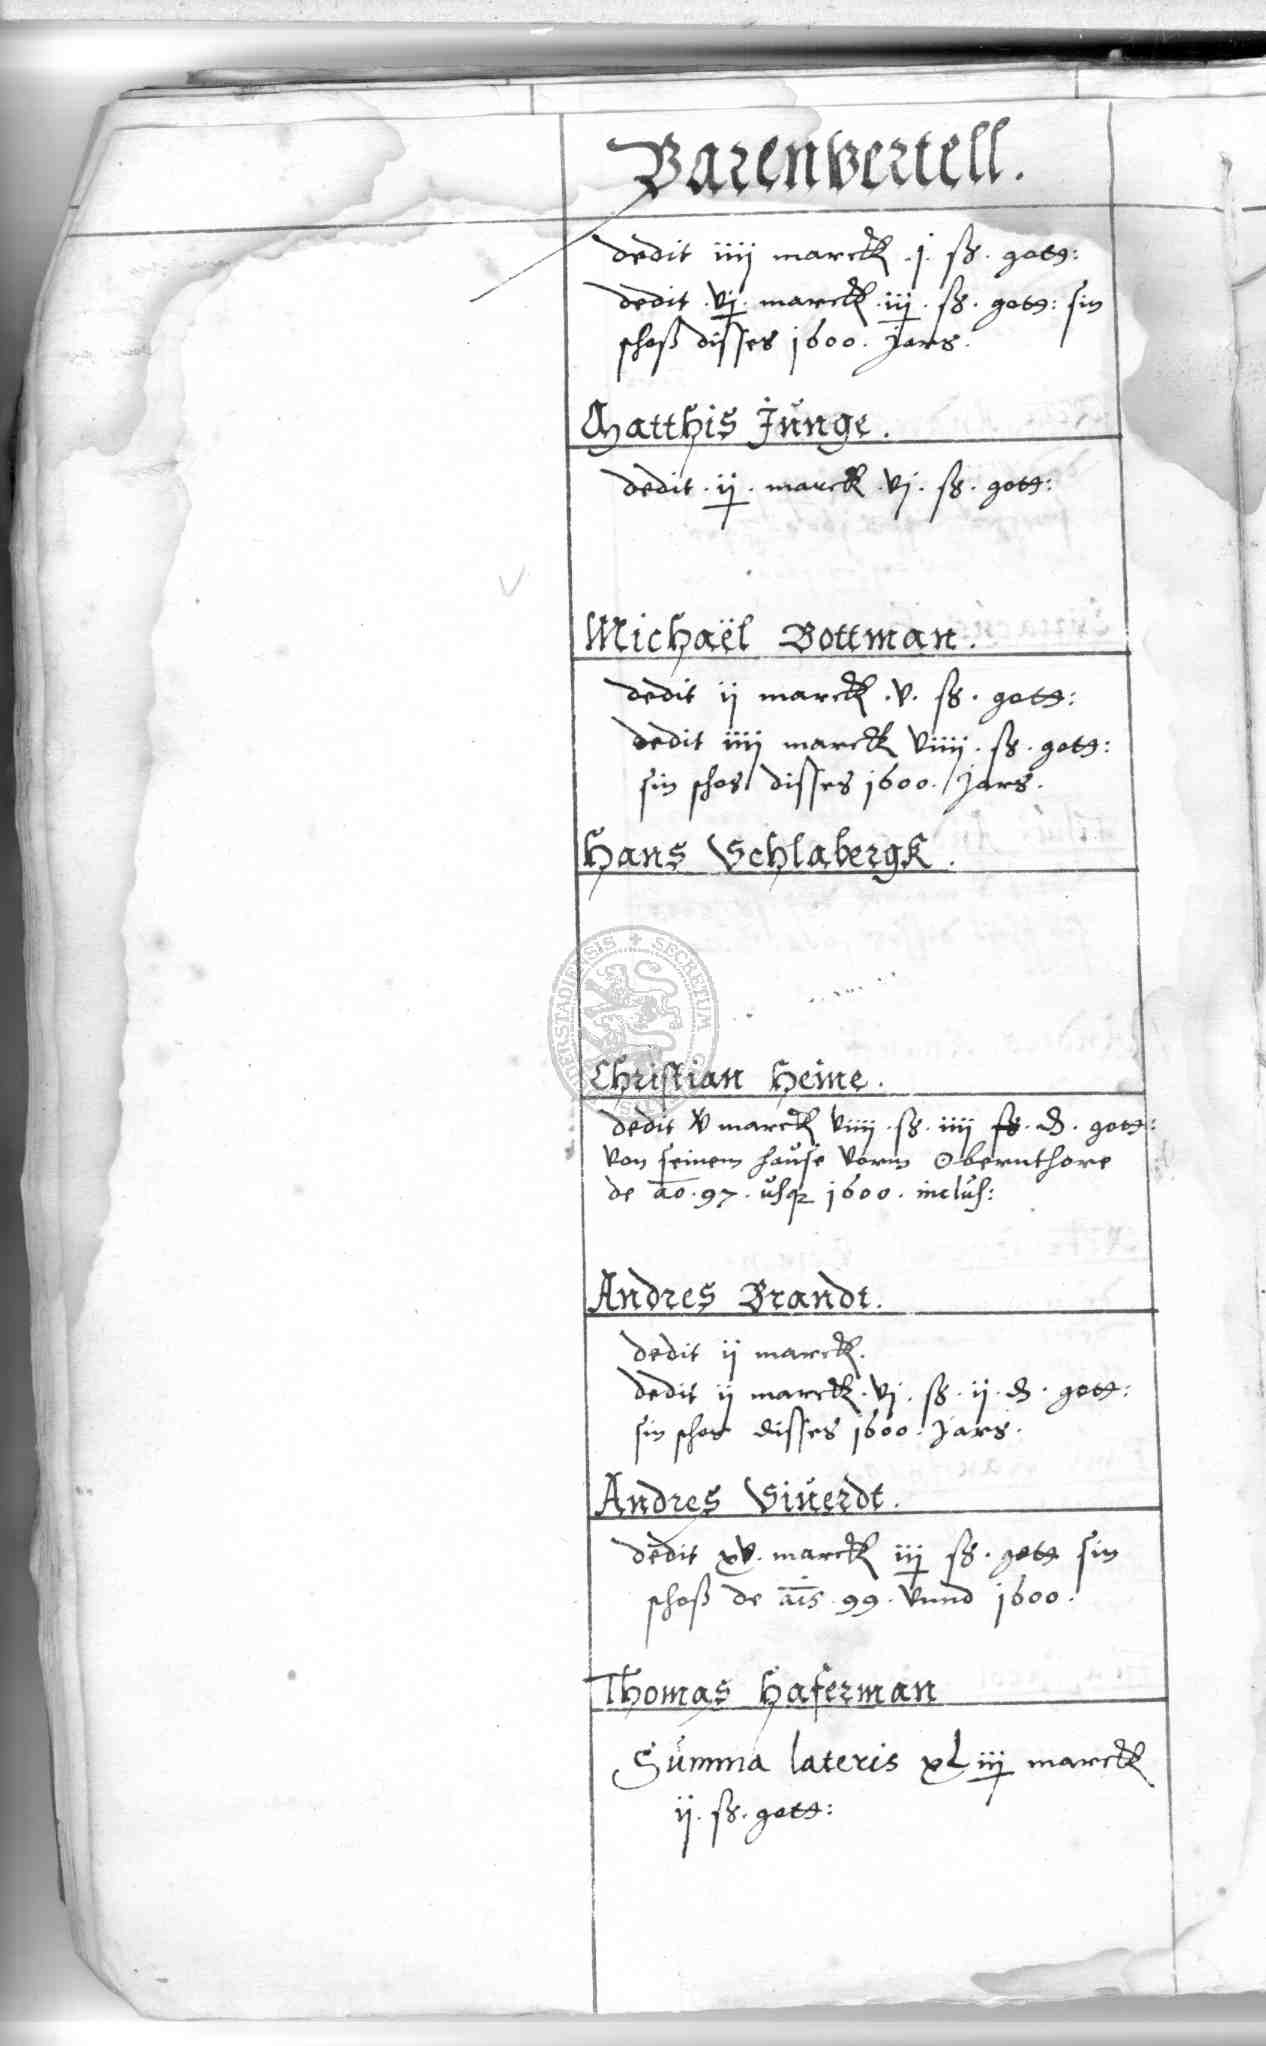 Barenvertell.
dedit iiij marck .j. ß. gots:
dedit .vj. marck .iij. ß. gots: sin
schoß disses 1600. Jars.
Matthis Junge.
dedit .ij. marck .vj. ß. gots:
Michaël Bottman.
dedit ij marck .v. ß. gots:
dedit iiij marck viiij. ß. gots:
sin schos disses 1600. Jars.
Hans Schlabergk.
SECRETUM
Christian Heine.
dedit v marck viiij. ß. iiij ß. d. gots:
von seinem hause vorm Obernthore
de ao. 97. usq 1600. inclus:
Andres Brandt.
dedit ij marck.
dedit ij marck .vj. ß. ij. d. gots:
sin schos disses 1600. Jars.
Andres Siuerdt.
dedit xv. marck iij ß. gots sin
schoß de ais. 99. vnnd 1600.
Thomas Haferman
Summa lateris xLiij marck
ij. ß. gots: